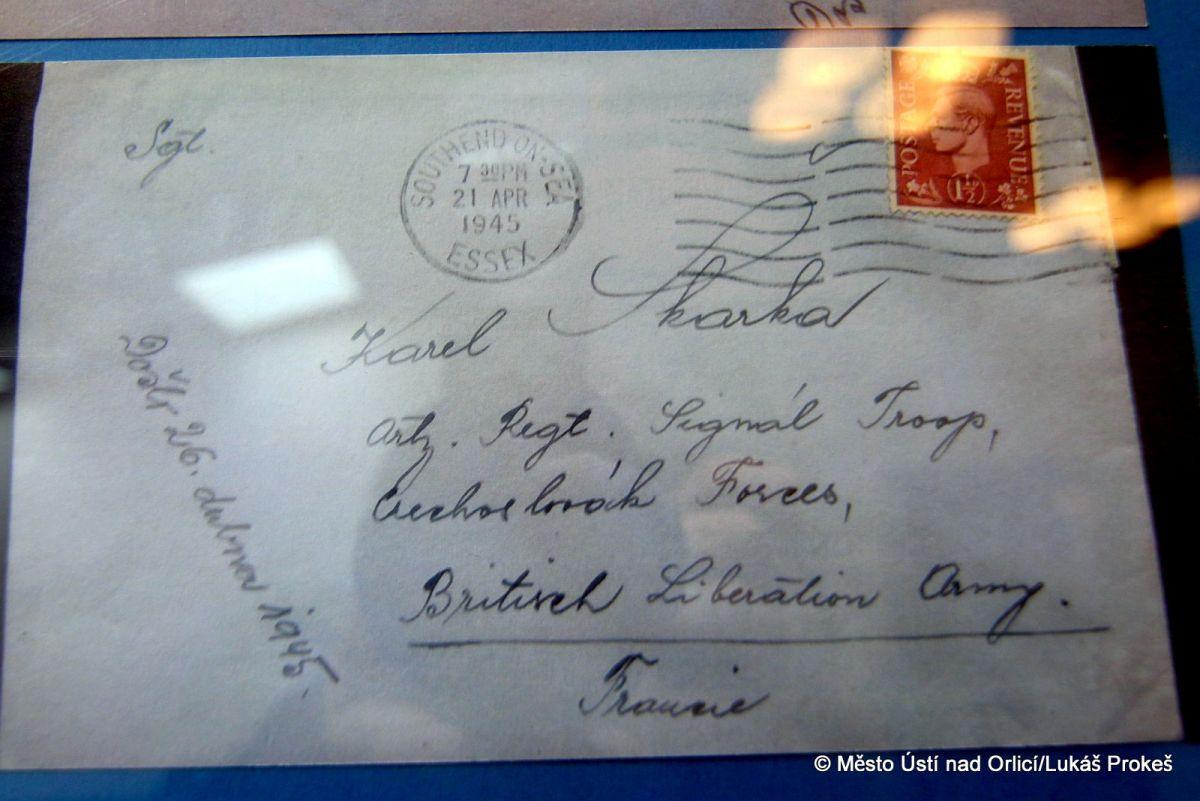 Sgt.
SOUTHEND-ON-SEA
7 30PM
21 APR
1945
ESSEX
POSTAGE
REVENUE
1½
Karel Skarka
Arty. Regt. Signál Troop,
Czechoslovák Forces,
Britisch Liberátion Army.
Francie
26. dubna 1945.
© Město Ústí nad Orlicí/Lukáš Prokeš